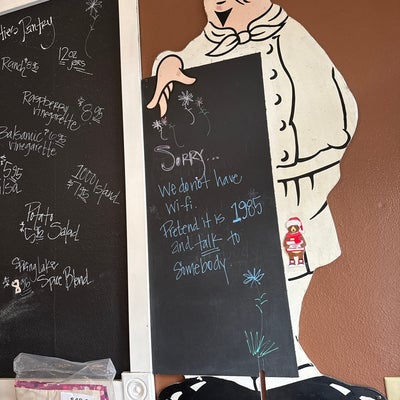 Pantry
Ranch
12oz
jars
Raspberry
vinegarette
$8.95
Balsamic
vinegarette
1000 Island
Potato
Salad
Spring Lake
Spice Blend
Sorry...
We do not have
wi-fi.
Pretend it is 1985
and talk to
somebody.